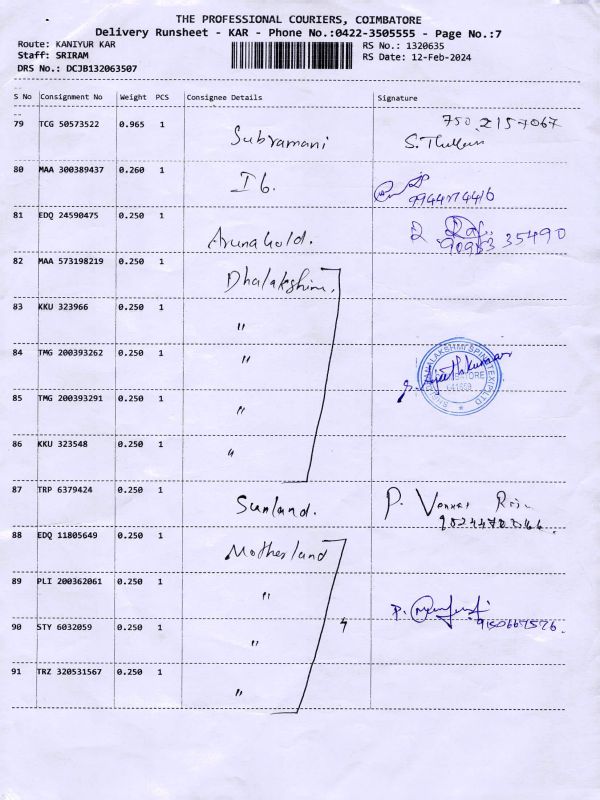 THE PROFESSIONAL COURIERS, COIMBATORE
Delivery Runsheet - KAR - Phone No.:0422-3505555 - Page No.:7
Route: KANIYUR KAR RS No.: 1320635
Staff: SRIRAM RS Date: 12-Feb-2024
DRS No.: DCJB132063507
S No Consignment No Weight PCS Consignee Details Signature
79 TCG 50573522 0.965 1 Subramani
80 MAA 300389437 0.260 1 I b. 9944174416
81 EDQ 24590475 0.250 1
82 MAA 573198219 0.250 1 Dhalakshmi.
83 KKU 323966 0.250 1 "
84 TMG 200393262 0.250 1 "
85 TMG 200393291 0.250 1 "
86 KKU 323548 0.250 1 "
87 TRP 6379424 0.250 1 Sunland. P.
88 EDQ 11805649 0.250 1 Motherland
89 PLI 200362061 0.250 1 " P.
90 STY 6032059 0.250 1 " 4
91 TRZ 320531567 0.250 1 "